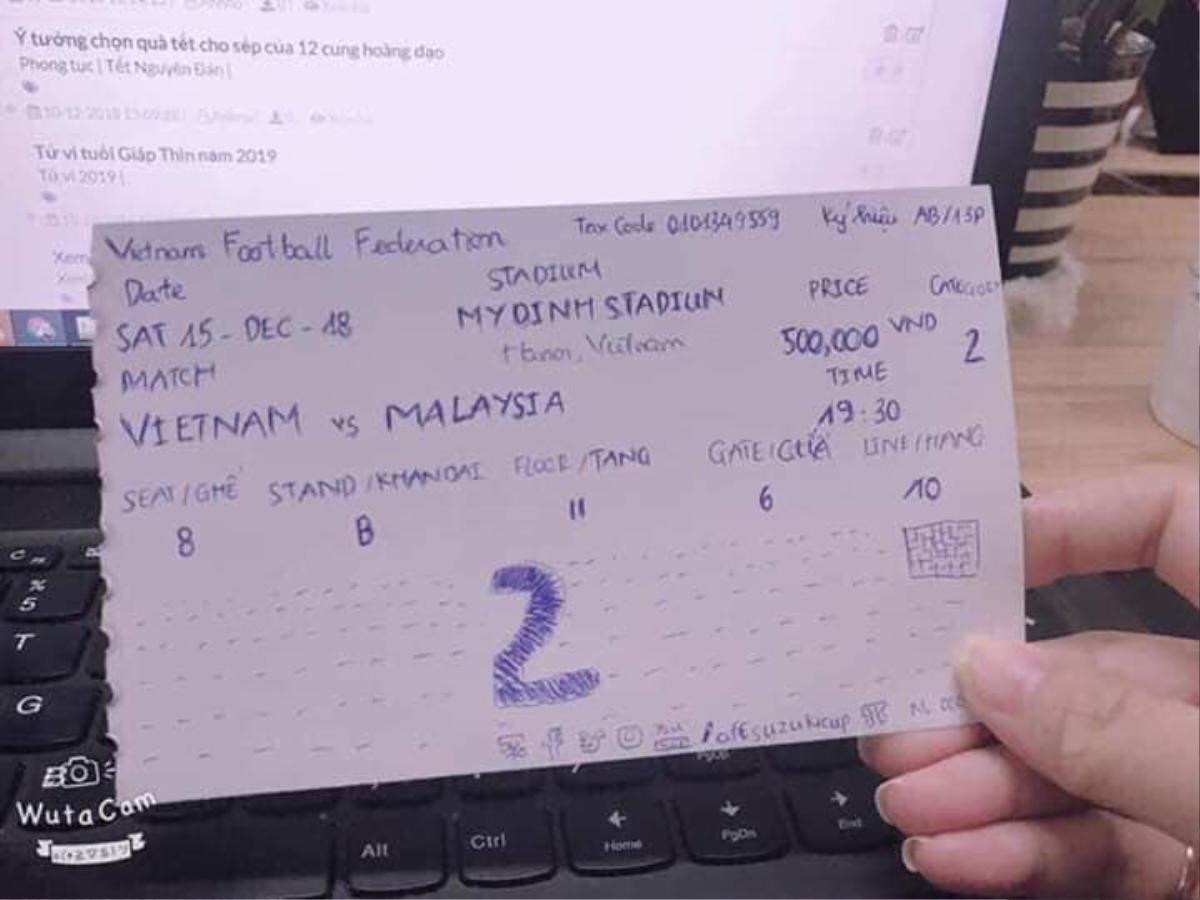 Ý tưởng chọn quà tết cho sếp của 12 cung hoàng đạo
Phong tục | Tết Nguyên Đán |
10-12-2018
Tử vi tuổi Giáp Thìn năm 2019
Tử vi 2019 |
Xem
Vietnam Football Federation Tax Code 0101349559 Ký hiệu AB/13P
Date STADIUM PRICE CATEGORY
SAT 15 - DEC - 18 MY DINH STADIUM 500,000 VND 2
Hanoi, Vietnam
MATCH TIME
VIETNAM vs MALAYSIA 19:30
SEAT/GHẾ STAND/KHANDAI FLOOR/TANG GATE/CỬA LINE/HANG
8 B 11 6 10
2
/affsuzukicup
C
%
5
T
G
Alt Ctrl Home PgDn End
WutaCam